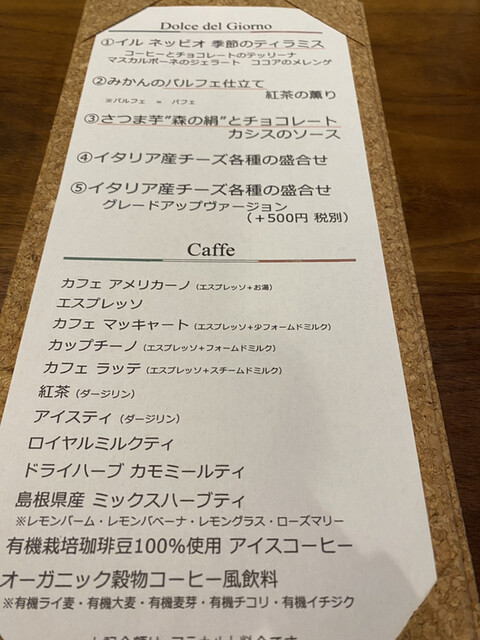 Dolce del Giorno
①イル ネッビオ 季節のティラミス
コーヒーとチョコレートのテッリーナ
マスカルポーネのジェラート ココアのメレンゲ
②みかんのパルフェ仕立て
紅茶の薫り
※パルフェ = パフェ
③さつま芋”森の絹”とチョコレート
カシスのソース
④イタリア産チーズ各種の盛合せ
⑤イタリア産チーズ各種の盛合せ
グレードアップヴァージョン
(+500円 税別)
Caffe
カフェ アメリカーノ (エスプレッソ+お湯)
エスプレッソ
カフェ マッキャート (エスプレッソ+少フォームドミルク)
カップチーノ (エスプレッソ+フォームドミルク)
カフェ ラッテ (エスプレッソ+スチームドミルク)
紅茶 (ダージリン)
アイスティ (ダージリン)
ロイヤルミルクティ
ドライハーブ カモミールティ
島根県産 ミックスハーブティ
※レモンバーム・レモンバベーナ・レモングラス・ローズマリー
有機栽培珈琲豆100%使用 アイスコーヒー
オーガニック穀物コーヒー風飲料
※有機ライ麦・有機大麦・有機麦芽・有機チコリ・有機イチジク